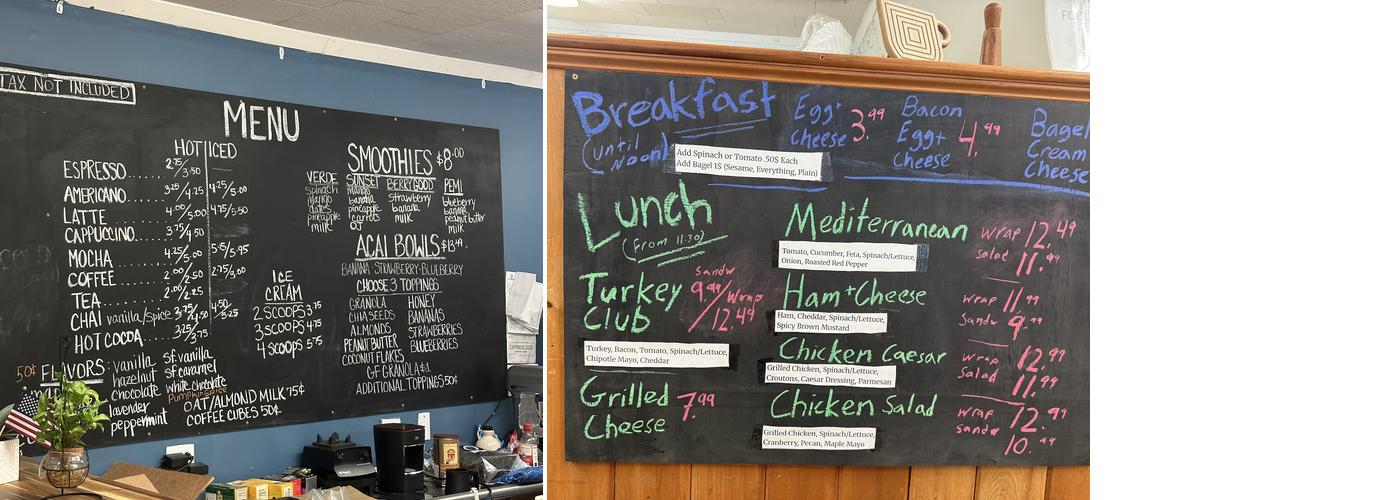 TAX NOT INCLUDED
MENU
HOT ICED
ESPRESSO...... 2.75/3.50
AMERICANO........ 3.25/4.25 4.25/5.00
LATTE........... 4.00/5.00 4.75/5.50
CAPPUCCINO..... 3.75/4.50
MOCHA 5.25/5.95
COFFEE........ 2.00/2.50 2.75/3.00
TEA............ 2.00/2.25
CHAI vanilla/spice 3.75/4.50 4.50/5.25
HOT COCOA..... 3.25/3.75
50¢ FLAVORS: vanilla sf. vanilla
hazelnut sf caramel
chocolate white chocolate
lavender Pumpkin spice
peppermint
OAT/ALMOND MILK 75¢
COFFEE CUBES 50¢
ICE
CREAM
2 SCOOPS 3.75
3 SCOOPS 4.75
4 SCOOPS 5.75
SMOOTHIES $8.00
VERDE SUNSET BERRY GOOD PEMI
spinach mango strawberry blueberry
mango banana banana banana
dates pineapple milk peanut butter
pineapple carrots milk
milk OJ
ACAI BOWLS $13.49.
BANANA STRAWBERRY-BLULBERRY
CHOOSE 3 TOPPINGS
GRANOLA HONEY
CHIA SEEDS BANANAS
ALMONDS STRAWBERRIES
PEANUT BUTTER BLUEBERRIES
COCONUT FLAKES
GF GRANOLA $1
ADDITIONAL TOPPINGS 50¢
Breakfast
(until Noon)
Add Spinach or Tomato .50$ Each
Add Bagel 1$ (Sesame, Everything, Plain)
Egg+ Cheese 3.99
Bacon Egg+ Cheese 4.99
Bagel Cream Cheese
Lunch
(From 11:30)
Turkey Club Sandw 9.99/Wrap 12.49
Turkey, Bacon, Tomato, Spinach/Lettuce,
Chipotle Mayo, Cheddar
Grilled Cheese 7.99
Mediterranean wrap 12.49
salad 11.99
Tomato, Cucumber, Feta, Spinach/Lettuce,
Onion, Roasted Red Pepper
Ham+Cheese wrap 11.99
Sandw 9.99
Ham, Cheddar, Spinach/Lettuce,
Spicy Brown Mustard
Chicken Caesar wrap 12.99
Salad 11.99
Grilled Chicken, Spinach/Lettuce,
Croutons, Caesar Dressing, Parmesan
Chicken Salad wrap 12.99
sandw 10.49
Grilled Chicken, Spinach/Lettuce,
Cranberry, Pecan, Maple Mayo